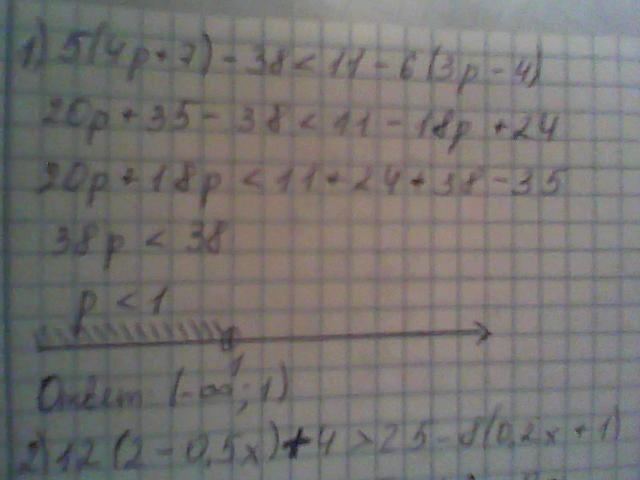 1) 5(4p+7) - 38 < 11 - 6(3p - 4)
20p + 35 - 38 < 11 - 18p + 24
20p + 18p < 11 + 24 + 38 - 35
38p < 38
p < 1
1
Ответ (-∞; 1)
2) 12(2 - 0,5x) + 4 > 25 - 8(0,2x + 1)